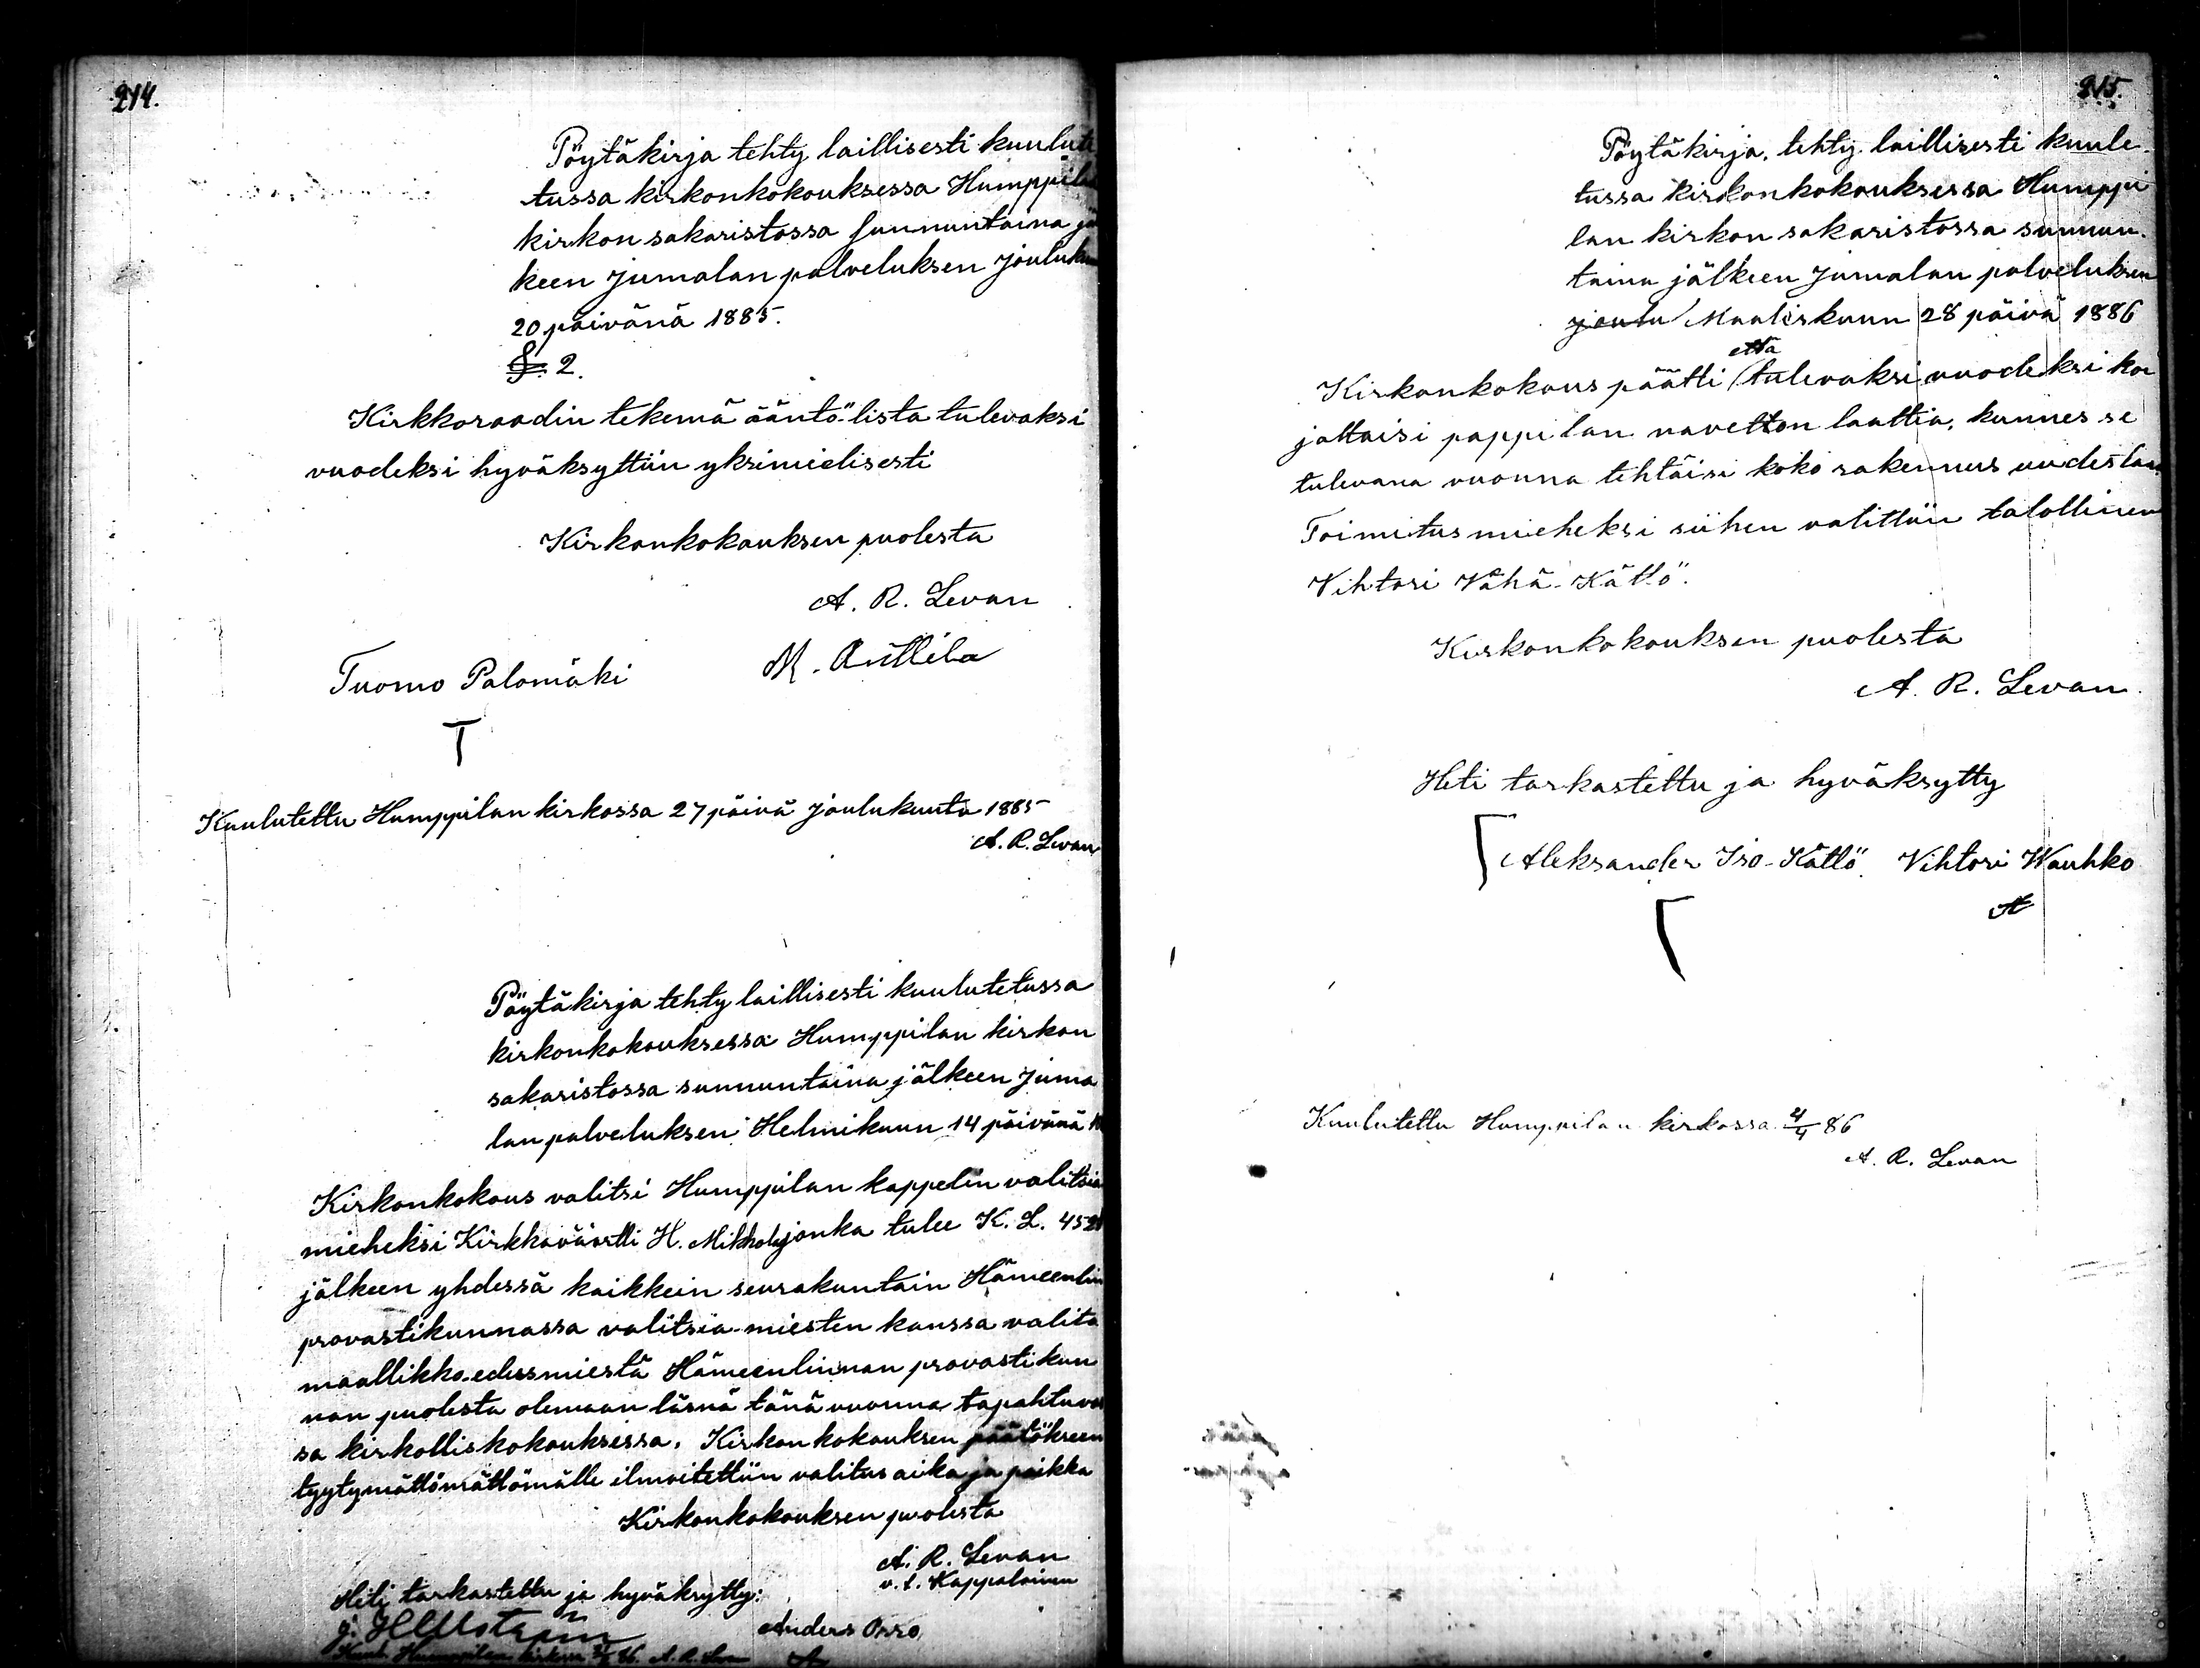 214.
Pöytäkirja tehty laillisesti kuulute
tussa kirkonkokouksessa Humppilan
kirkon sakaristossa Sunnuntaina jä
keen Jumalan palveluksen Jouluku
20 päivänä 1885.
§. 2.
Kirkkoraadin tekemä ääntö-lista tulevaksi
vuodeksi hyväksyttiin yksimielisesti
Kirkonkokouksen puolesta
A. R. Levan
Tuomo Palomäki M. Anttila
T
Kuulutettu Humppilan kirkossa 27 päivä Joulukuuta 1885
A. R. Levan
Pöytäkirja tehty laillisesti kuulutetussa
kirkonkokouksessa Humppilan kirkon
sakaristossa sunnuntaina jälkeen Juma
lan palveluksen Helmikuun 14 päivänä
Kirkonkokous valitsi Humppilan kappelin valitsia
mieheksi Kirkkoväärtti H. Mikkola jonka tulee K. L. 452
jälkeen yhdessä kaikkein seurakuntain Hämeenlin
provastikunnassa valitsia-miesten kanssa valita
maallikko-edusmiestä Hämeenlinnan provastikun
nan puolesta olemaan läsnä tänä vuonna tapahtuvas
sa kirkolliskokouksessa. Kirkonkokouksen päätökseen
tyytymättömättömälle ilmoitettiin valitus aika ja paikka
Kirkonkokouksen puolesta
A. R. Levan
v. t. Kappalainen
Heti tarkastettu ja hyväksytty:
J. Hellström Anders Orro
Humppilan kirkossa A. R. Levan
215.
Pöytäkirja, tehty laillisesti kuule-
tussa kirkonkokouksessa Humppi
lan kirkon sakaristossa sunnun-
taina jälkeen Jumalan palveluksen
joulu Maaliskuun 28 päivä 1886
Kirkonkokous päätti että tulevaksi vuodeksi kor
jattaisi pappilan navetton laattia, kunnes se
tulevana vuonna tehtäisi koko rakennus uudestan.
Toimitusmieheksi siihen valittiin talollinen
Vihtori Vähä-Kättö.
Kirkonkokouksen puolesta
A. R. Levan
Heti tarkastettu ja hyväksytty
Aleksander Iso-Kättö Vihtori Wauhko
Kuulutettu Humppilan kirkossa 4/4 86
A. R. Levan